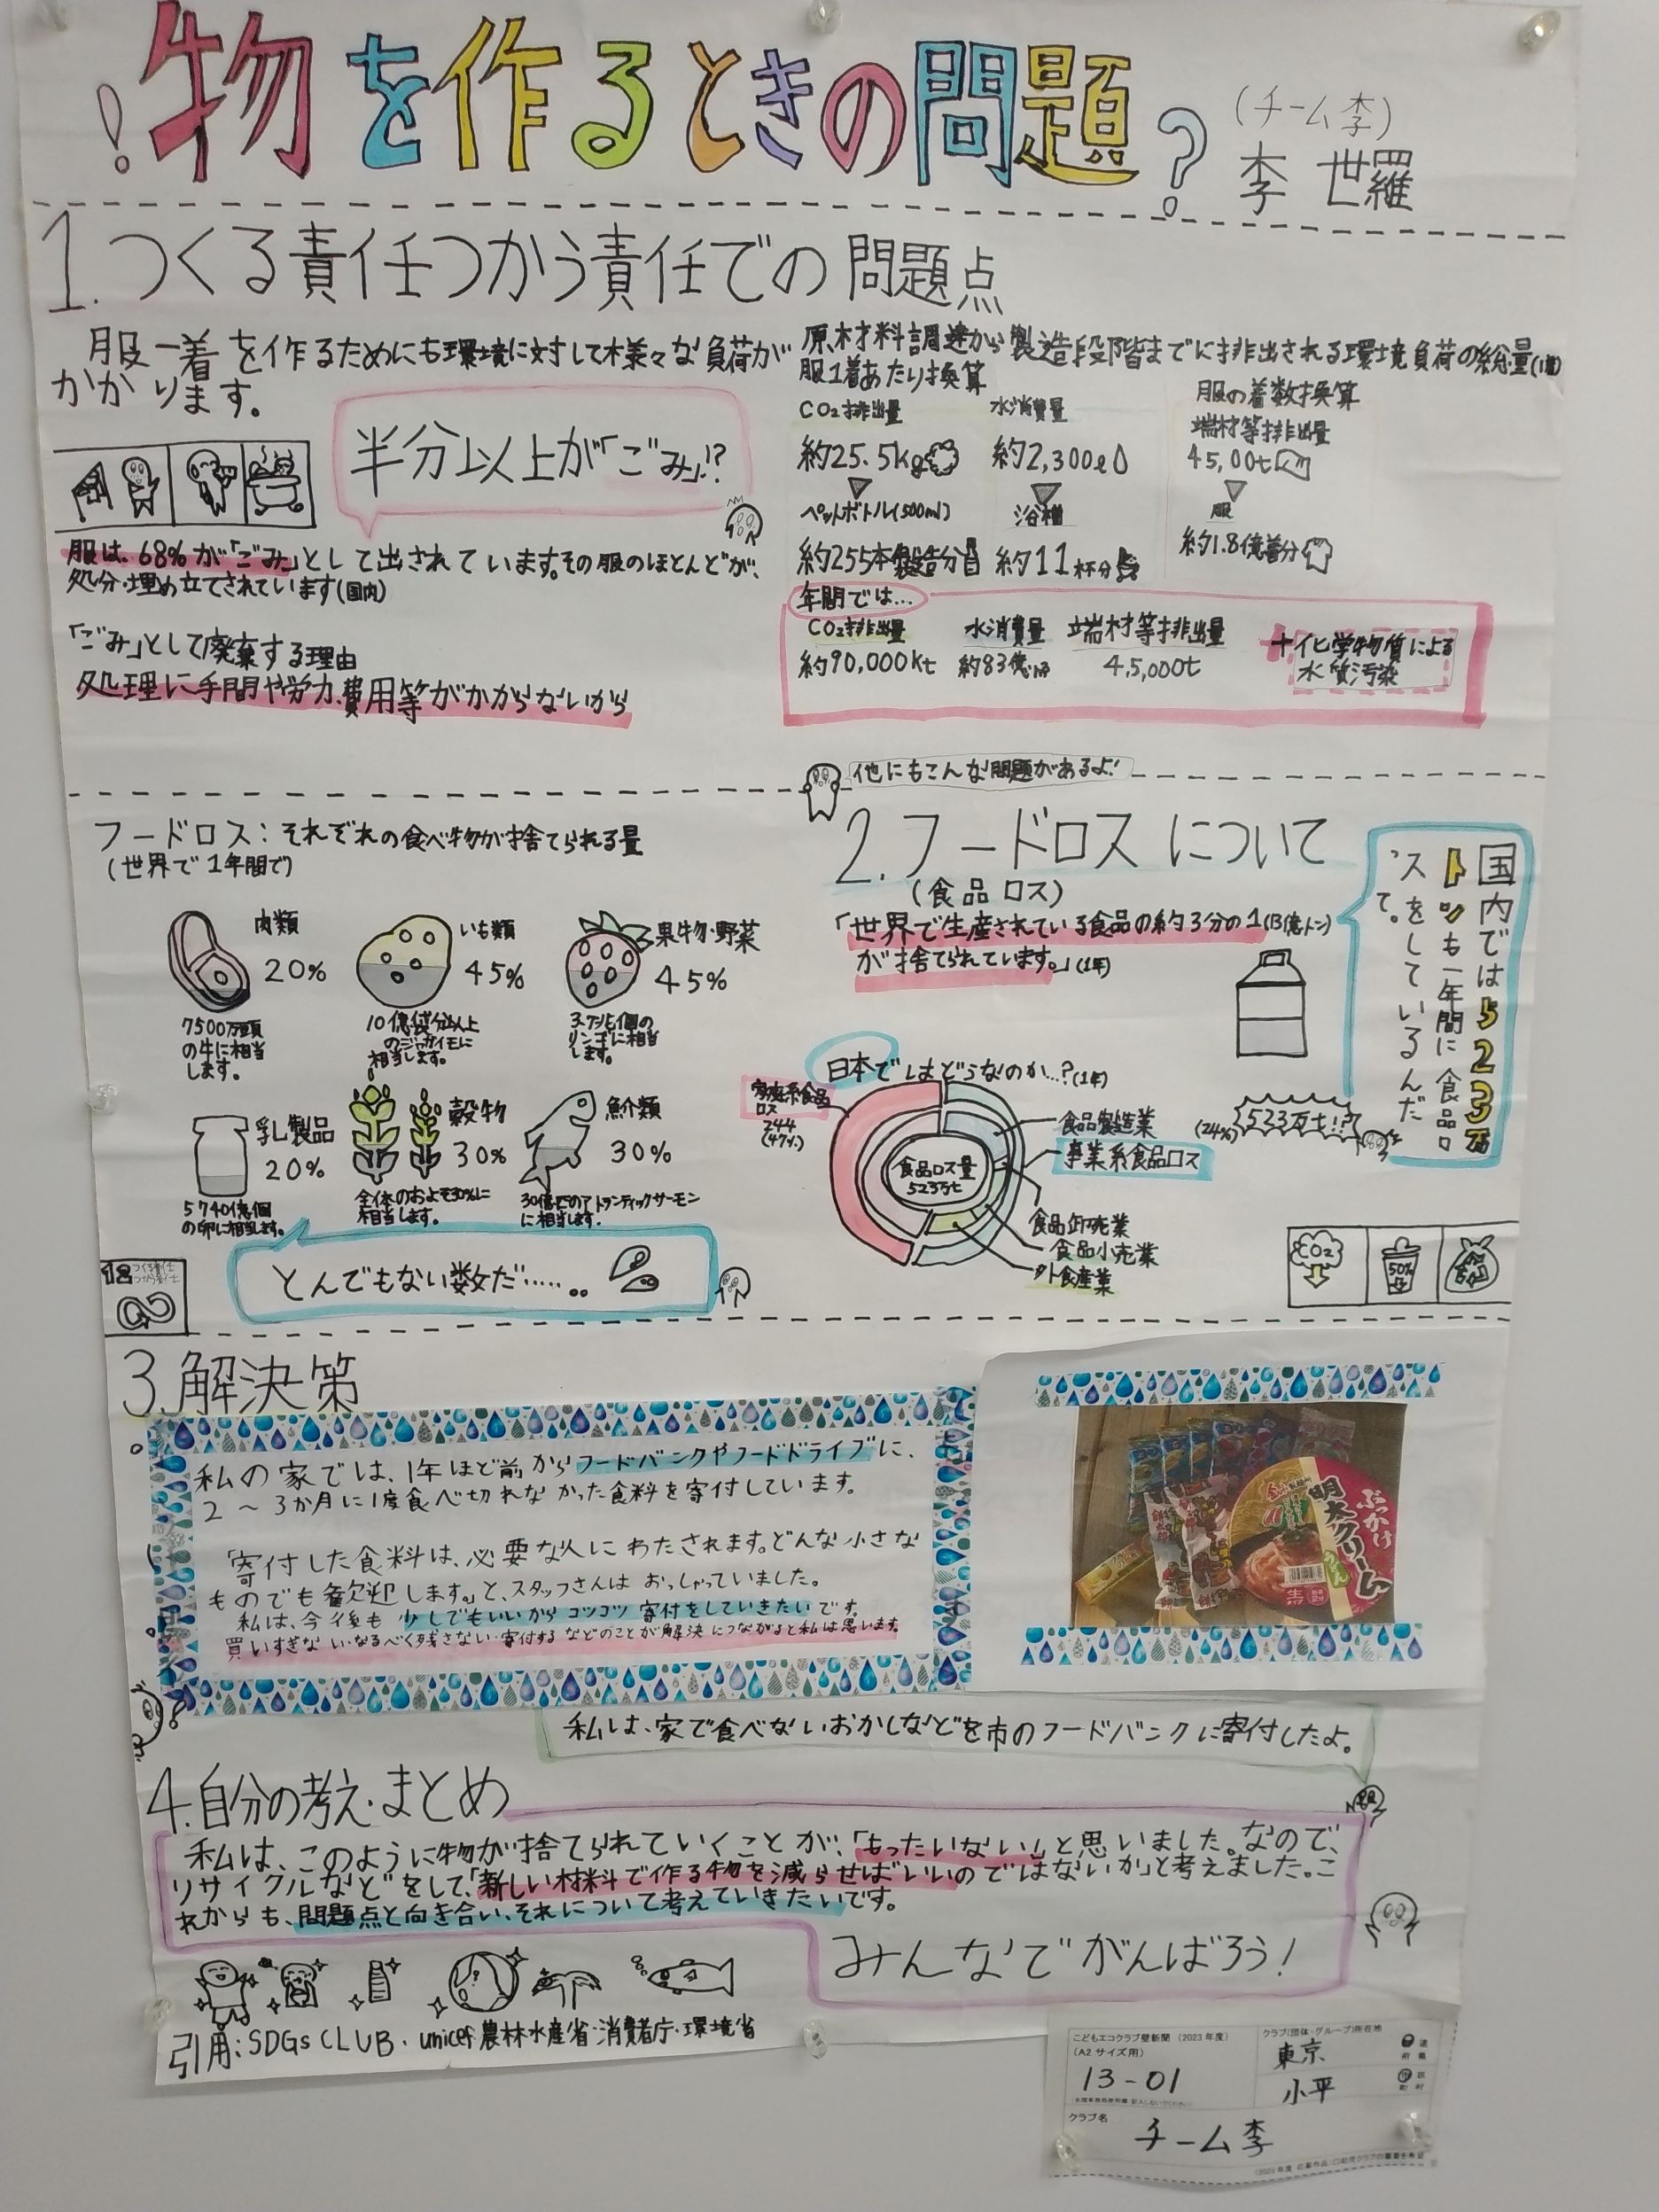 !物を作るときの問題?
(チーム李)
李 世羅
1.つくる責任つかう責任での問題点
服一着を作るためにも環境に対して様々な負荷が
かかります。
半分以上が「ごみ」!?
服は、68%が「ごみ」として出されています。その服のほとんどが、
処分・埋め立てされています(国内)
「ごみ」として廃棄する理由
処理に手間や労力、費用等がかからないから
原材料調達から製造段階までに排出される環境負荷の総量
服1着あたり換算
CO2排出量
約25.5kg
ペットボトル(500ml)
約255本製造分
水消費量
約2,300ℓ
浴槽
約11杯分
服の着数換算
端材等排出量
45,00t
服
約1.8億着分
年間では…
CO2排出量
約90,000kt
水消費量
約83億㎥
端材等排出量
45,000t
+化学物質による
水質汚染
他にもこんな問題があるよ!
フードロス:それぞれの食べ物が捨てられる量
(世界で1年間で)
肉類
20%
7500万頭
の牛に相当
します。
いも類
45%
10億袋分以上
のジャガイモに
相当します。
果物・野菜
45%
3.7兆個の
リンゴに相当
します。
乳製品
20%
5740億個
の卵に相当します。
穀物
30%
全体のおよそ30%に
相当します。
魚介類
30%
30億匹のアトランティックサーモン
に相当します。
とんでもない数だ……。
12つくる責任
つかう責任
2.フードロスについて
(食品ロス)
「世界で生産されている食品の約3分の1(13億トン)
が捨てられています。」(1年)
国内では523万
トンも一年間に食品ロ
スをしているんだ
て。
523万t!?
日本ではどうなのか…?(1年)
家庭系食品
ロス
244
(47%)
食品ロス量
523万t
食品製造業
(24%)
事業系食品ロス
食品卸売業
食品小売業
外食産業
CO2
50%
3.解決策
私の家では、1年ほど前からフードバンクやフードドライブに、
2〜3か月に1度食べ切れなかった食料を寄付しています。
「寄付した食料は、必要な人にわたされます。どんな小さな
ものでも歓迎します。」と、スタッフさんはおっしゃっていました。
私は、今後も少しでもいいからコツコツ寄付をしていきたいです。
買いすぎない・なるべく残さない・寄付するなどのことが解決につながると私は思います。
ぶっかけ
明太クリーム
うどん
私は、家で食べないおかしなどを市のフードバンクに寄付したよ。
4.自分の考え・まとめ
私は、このように物が捨てられていくことが、「もったいない」と思いました。なので、
リサイクルなどをして、「新しい材料で作る物を減らせばいいのではないか」と考えました。こ
れからも、問題点と向き合い、それについて考えていきたいです。
みんなでがんばろう!
引用:SDGs CLUB・unicef 農林水産省・消費者庁・環境省
こどもエコクラブ壁新聞(2023年度)
(A2サイズ用)
13-01
クラブ(団体・グループ)所在地
東京
小平
クラブ名
チーム李